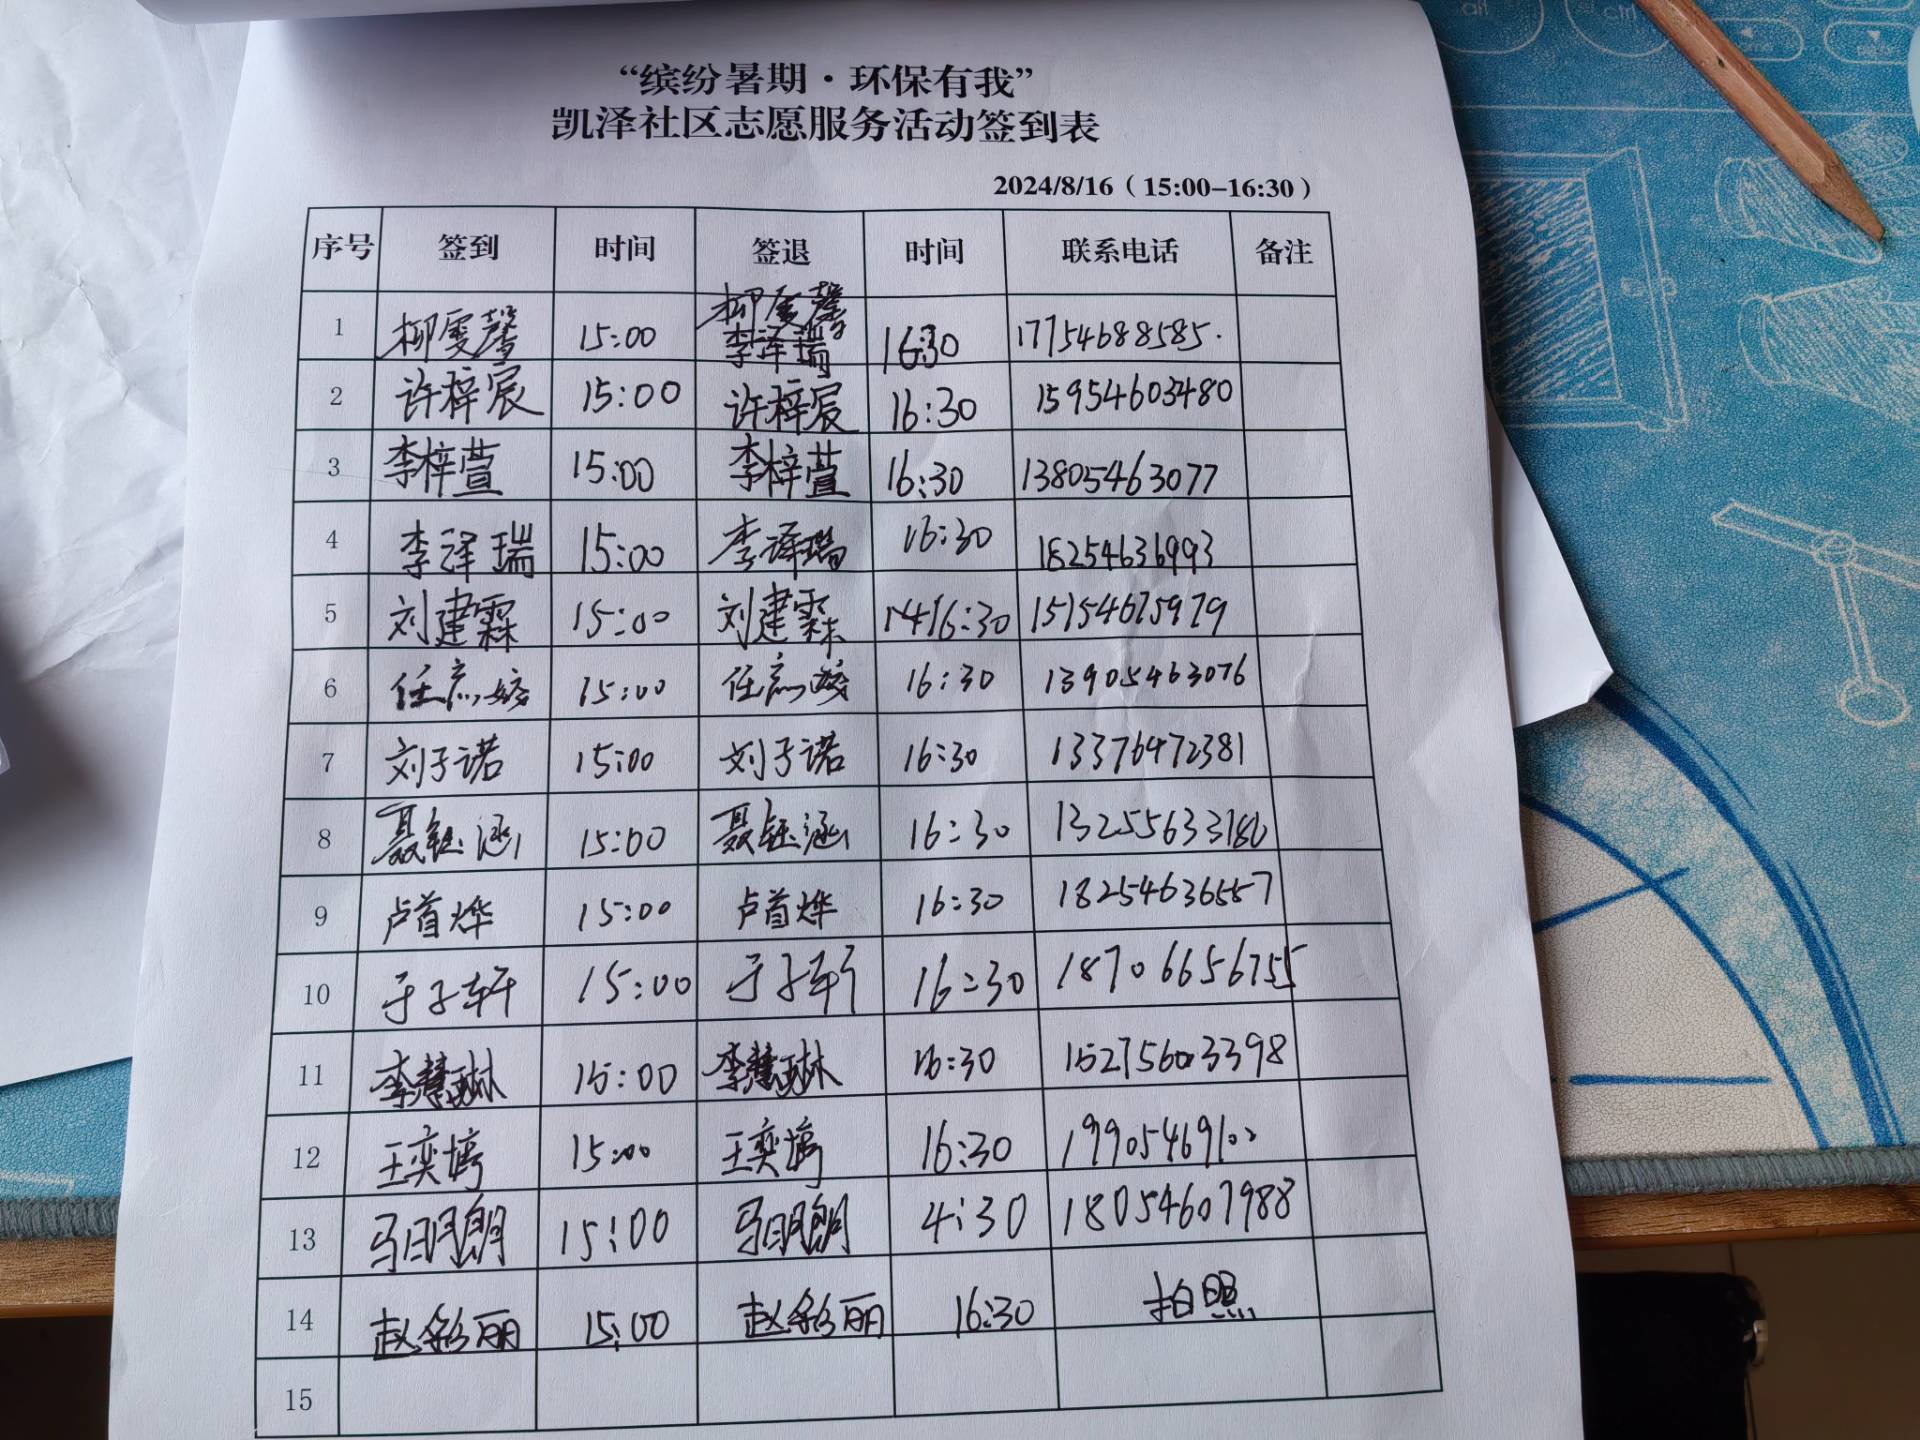 “缤纷暑期·环保有我”
凯泽社区志愿服务活动签到表
2024/8/16（15:00-16:30）
序号 签到 时间 签退 时间 联系电话 备注
1 柳雯馨 15:00 柳雯馨 李泽瑞 16:30 17754688585.
2 许梓宸 15:00 许梓宸 16:30 15954603480
3 李梓萱 15:00 李梓萱 16:30 13805463077
4 李泽瑞 15:00 李泽瑞 16:30 18254636993
5 刘建霖 15:00 刘建霖 16:30 15154675979
6 15:00 16:30 13905463076
7 刘子诺 15:00 刘子诺 16:30 13376472381
8 聂钰涵 15:00 聂钰涵 16:30
9 卢首烨 15:00 卢首烨 16:30 18254636557
10 于子轩 15:00 于子轩 16:30 18706656755
11 李慧琳 15:00 李慧琳 16:30 15275603398
12 15:00 16:30
13 马明朗 15:00 马明朗 4:30 18054607988
14 赵彩丽 15:00 赵彩丽 16:30 拍照
15